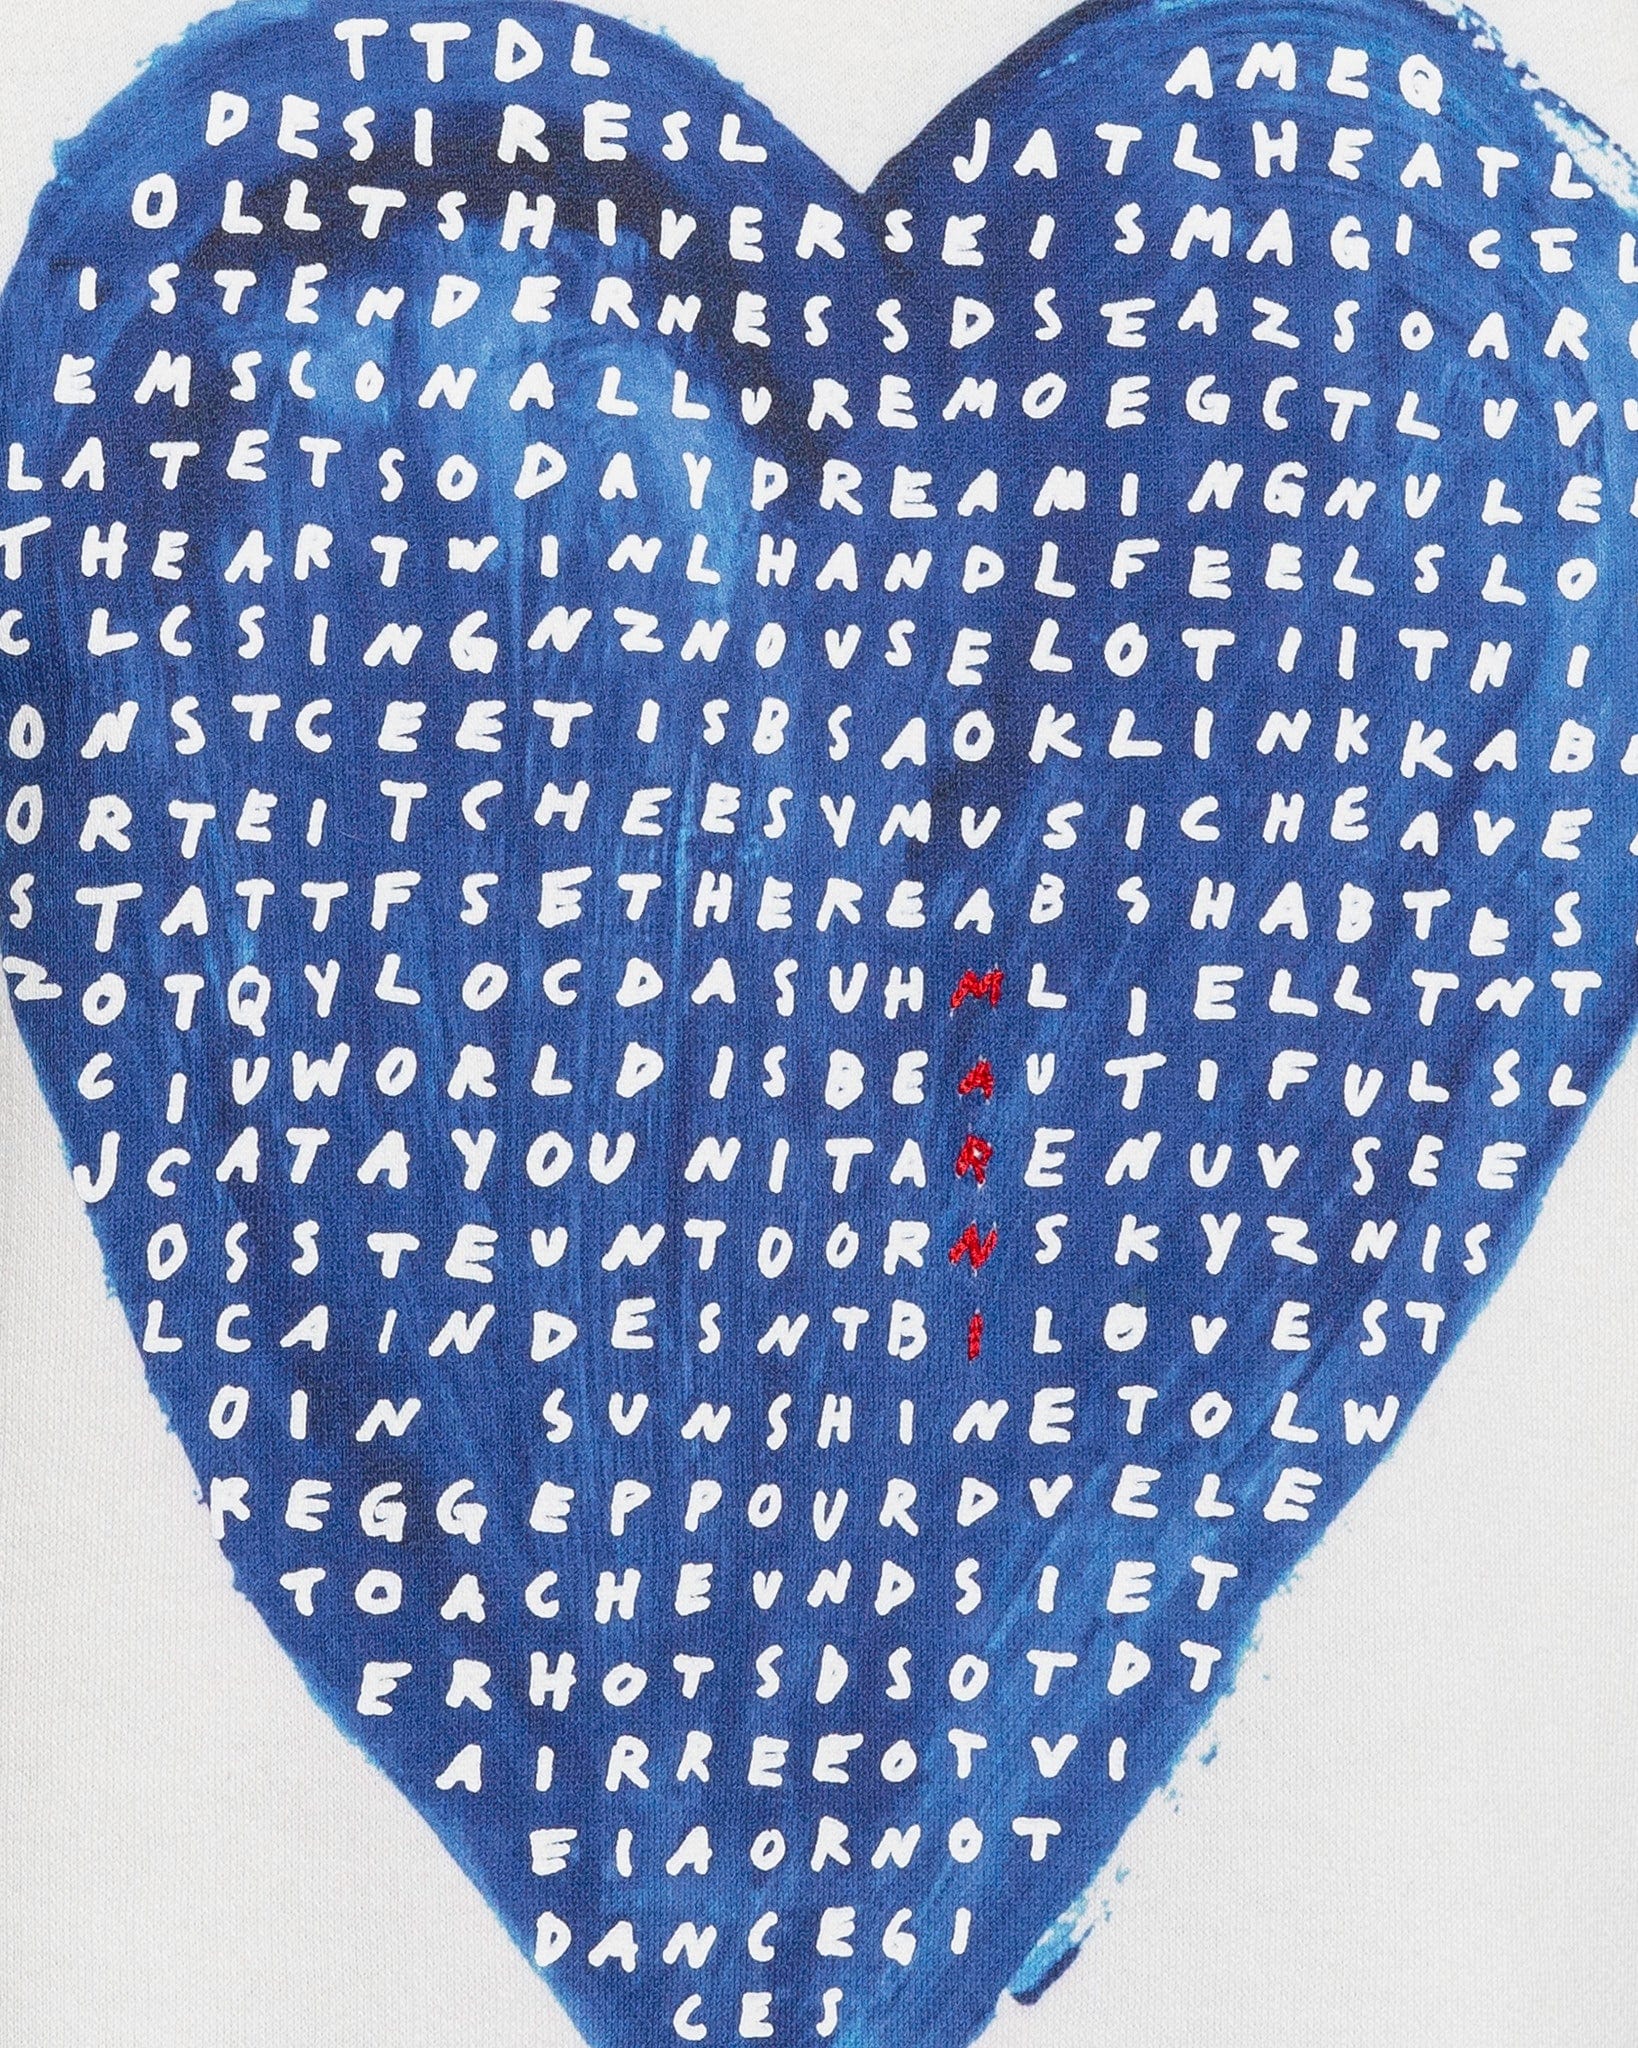 TTDL AMEQ
DESIRESL JATLHEATL
OLLTSHIVERSEISMAGICEL
ISTENDERNESSDSTEAZSOAR
EMSCONALLUREMOEGCTLUV
LATETSODAYDREAMINGNULE
THEARTWINLHANDLFEELSLO
CLCSINGNZNOUSELOTIITHI
ONSTCEETISBSAOKLINKKAB
ORTEITCHEESYMUSICHEAVE
STATTFSETHEREABSHABTES
ZOTQYLOCDASUHMLIELLTNT
CIUWORLDISBEAUTIFULSL
JCATAYOUNITARENUVSEE
OSSTEUNTOORNSKYZNIS
LCAINDESNTBILOVEST
OIN SUNSHINETOLW
REGGEPPOURDVELE
TOACHEUNDSIET
ERHOTSDSOTDT
AIRREEOTVI
EIAORNOT
DANCEGI
CES